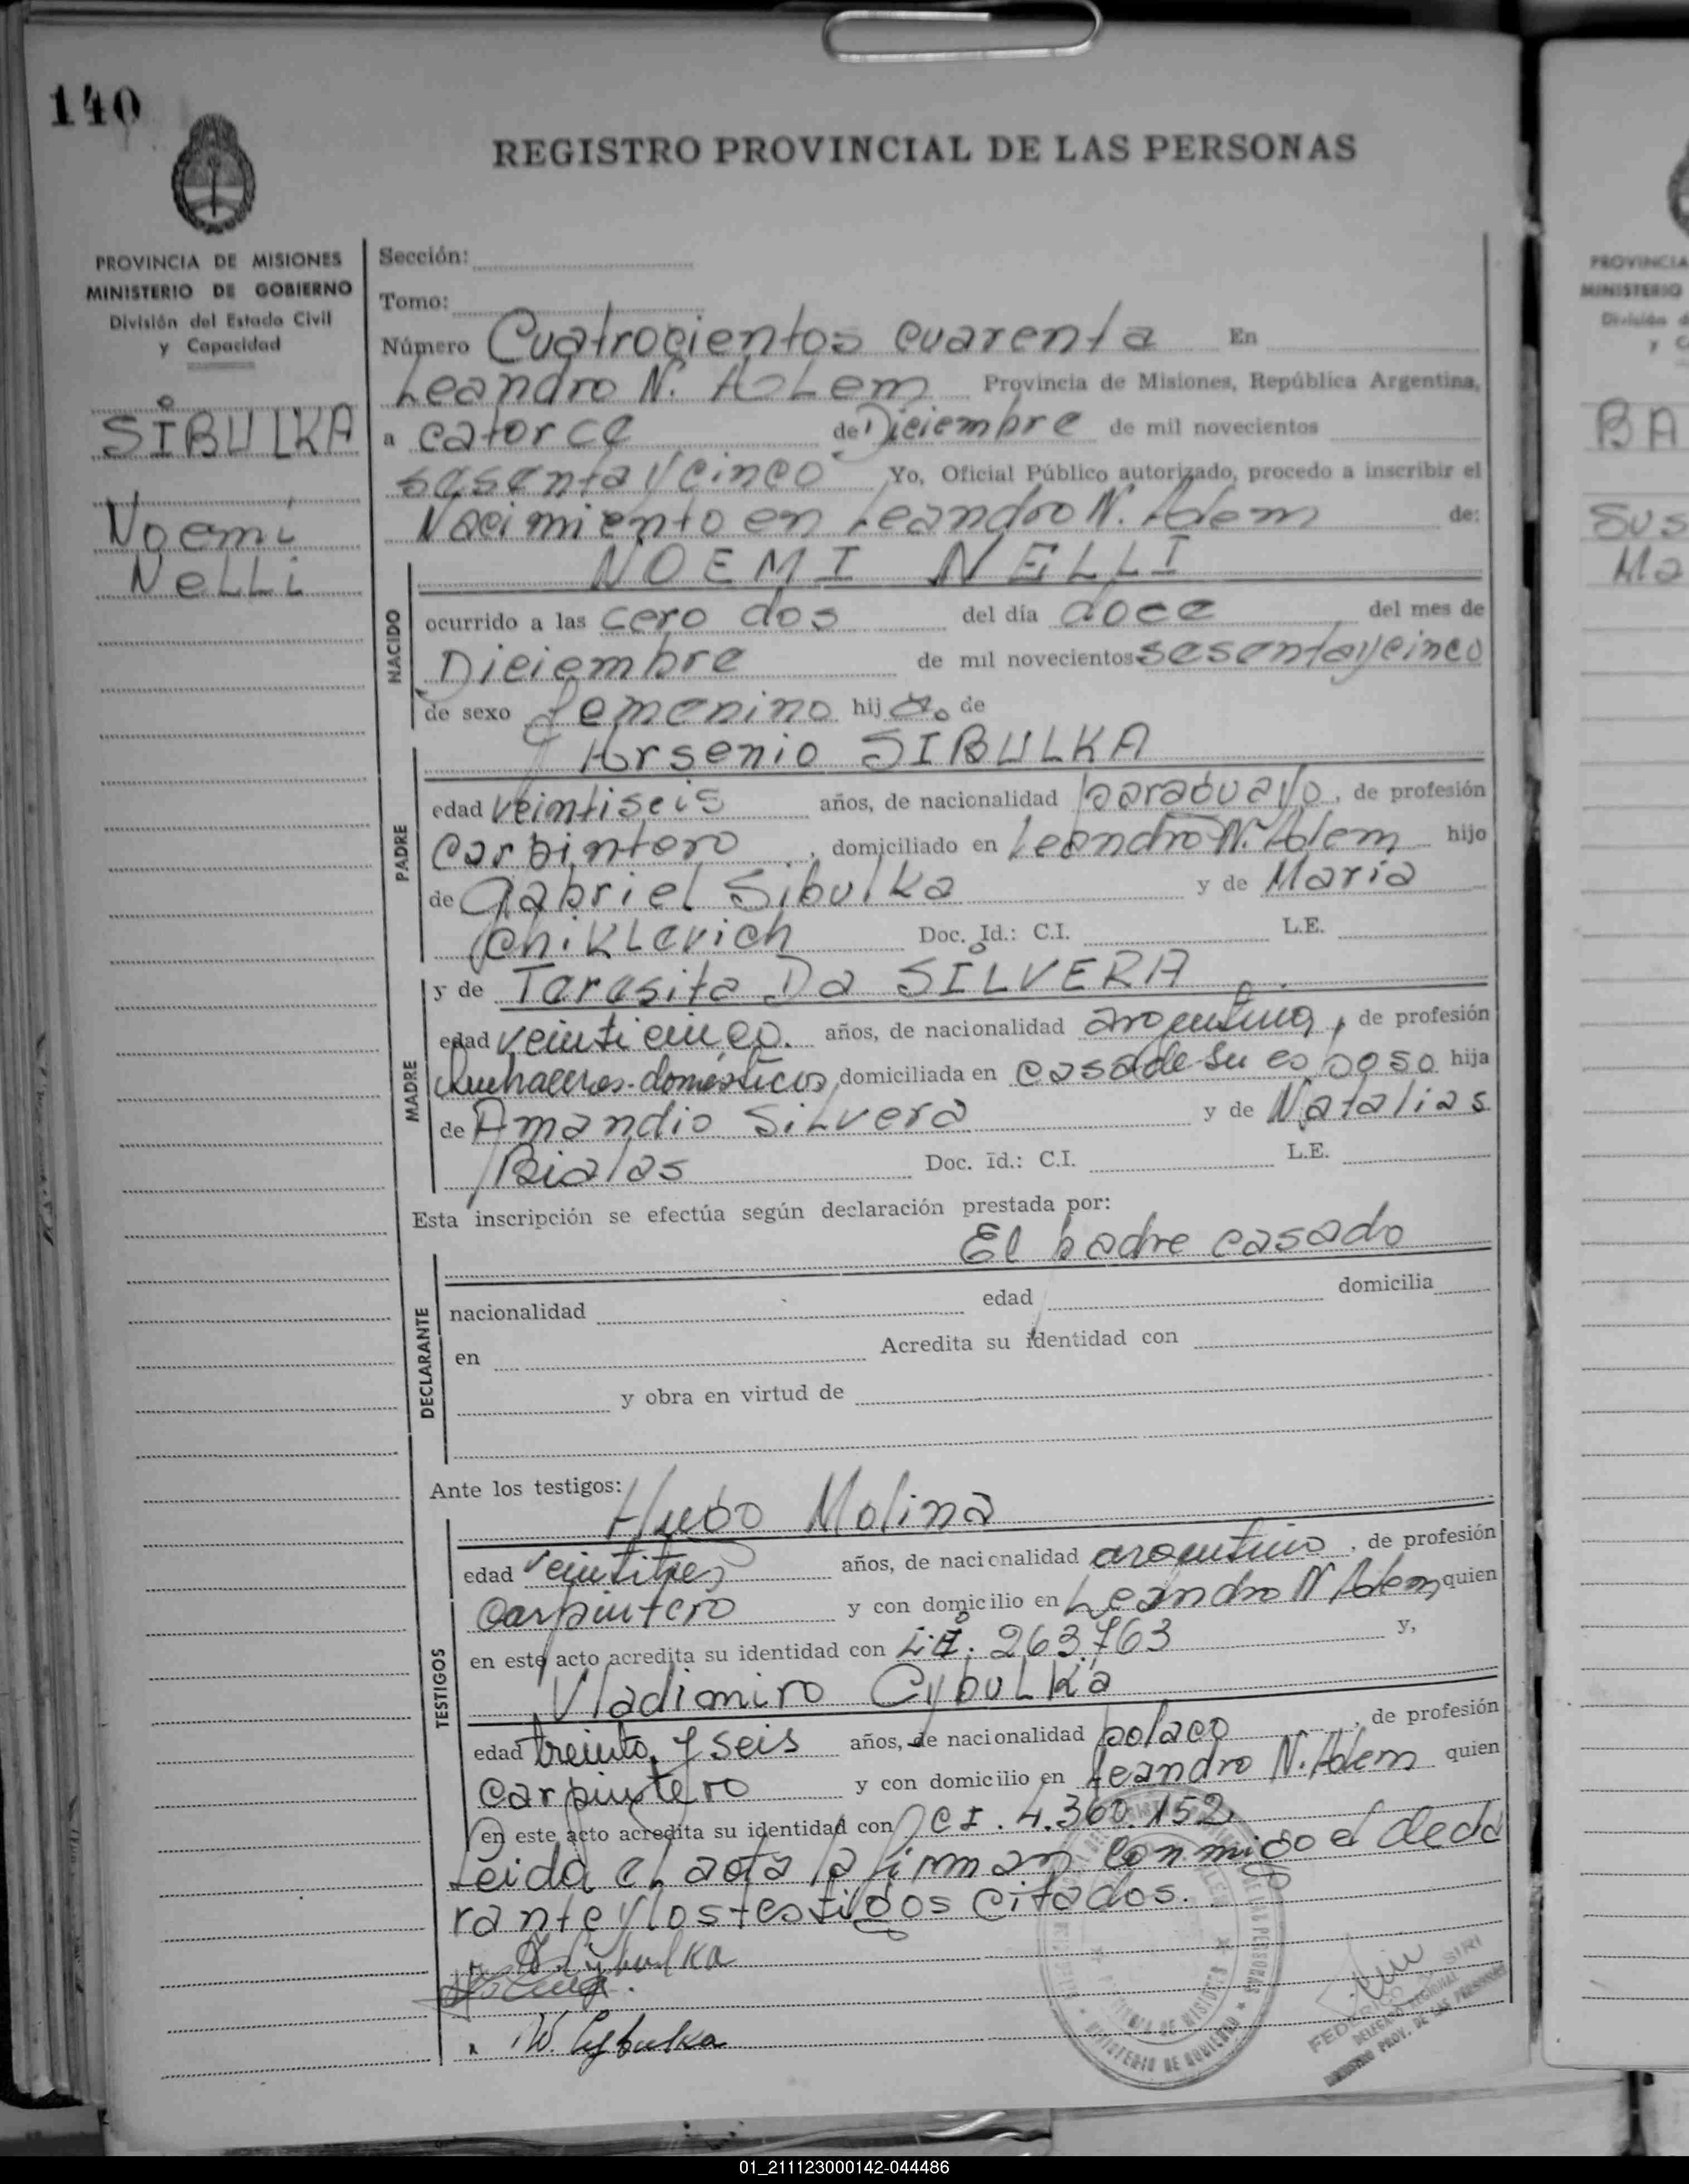 140
REGISTRO PROVINCIAL DE LAS PERSONAS
PROVINCIA DE MISIONES
MINISTERIO DE GOBIERNO
División del Estado Civil
y Capacidad
SIBULKA
Noemi
Nelli
Sección:
Tomo:
Número Cuatrocientos cuarenta En
Leandro N. Alem Provincia de Misiones, República Argentina,
a catorce de Diciembre de mil novecientos
sesenta y cinco Yo, Oficial Público autorizado, procedo a inscribir el
Nacimiento en Leandro N. Alem de:
NOEMI NELLI
NACIDO
ocurrido a las cero dos del día doce del mes de
Diciembre de mil novecientos sesenta y cinco
de sexo femenino hija de
PADRE
Arsenio SIBULKA
edad veintiseis años, de nacionalidad paraguayo, de profesión
carpintero, domiciliado en Leandro N. Alem hijo
de Gabriel Sibulka y de María
Chiklevich Doc. Id.: C.I. L.E.
MADRE
y de Teresita Da SILVERA
edad veinticinco. años, de nacionalidad argentina, de profesión
Quehaceres domésticos, domiciliada en casa de su esposo hija
de Amandio Silvera y de Natalias
Bialas Doc. Id.: C.I. L.E.
Esta inscripción se efectúa según declaración prestada por:
El padre casado
DECLARANTE
nacionalidad edad domicilia
en Acredita su identidad con
y obra en virtud de
Ante los testigos:
TESTIGOS
Hugo Molina
edad veintitres años, de nacionalidad argentino, de profesión
carpintero y con domicilio en Leandro N Alem quien
en este acto acredita su identidad con 263.763 y,
Vladimiro Cybulka
edad treinta y seis años, de nacionalidad polaco, de profesión
carpintero y con domicilio en Leandro N. Alem quien
en este acto acredita su identidad con CI. 4.360.152
Leida el acta la firman conmigo el decla
rante y los testigos citados.
Cybulka
W. Cybulka
MINISTERIO DE GOBIERNO
PROVINCIA DE MISIONES
FEDERICO SIRI
DELEGADO REGIONAL
REGISTRO PROV. DE LAS PERSONAS
PROVINCIA
MINISTERIO
División d
y C
BA
SUS
Ma
01_211123000142-044486